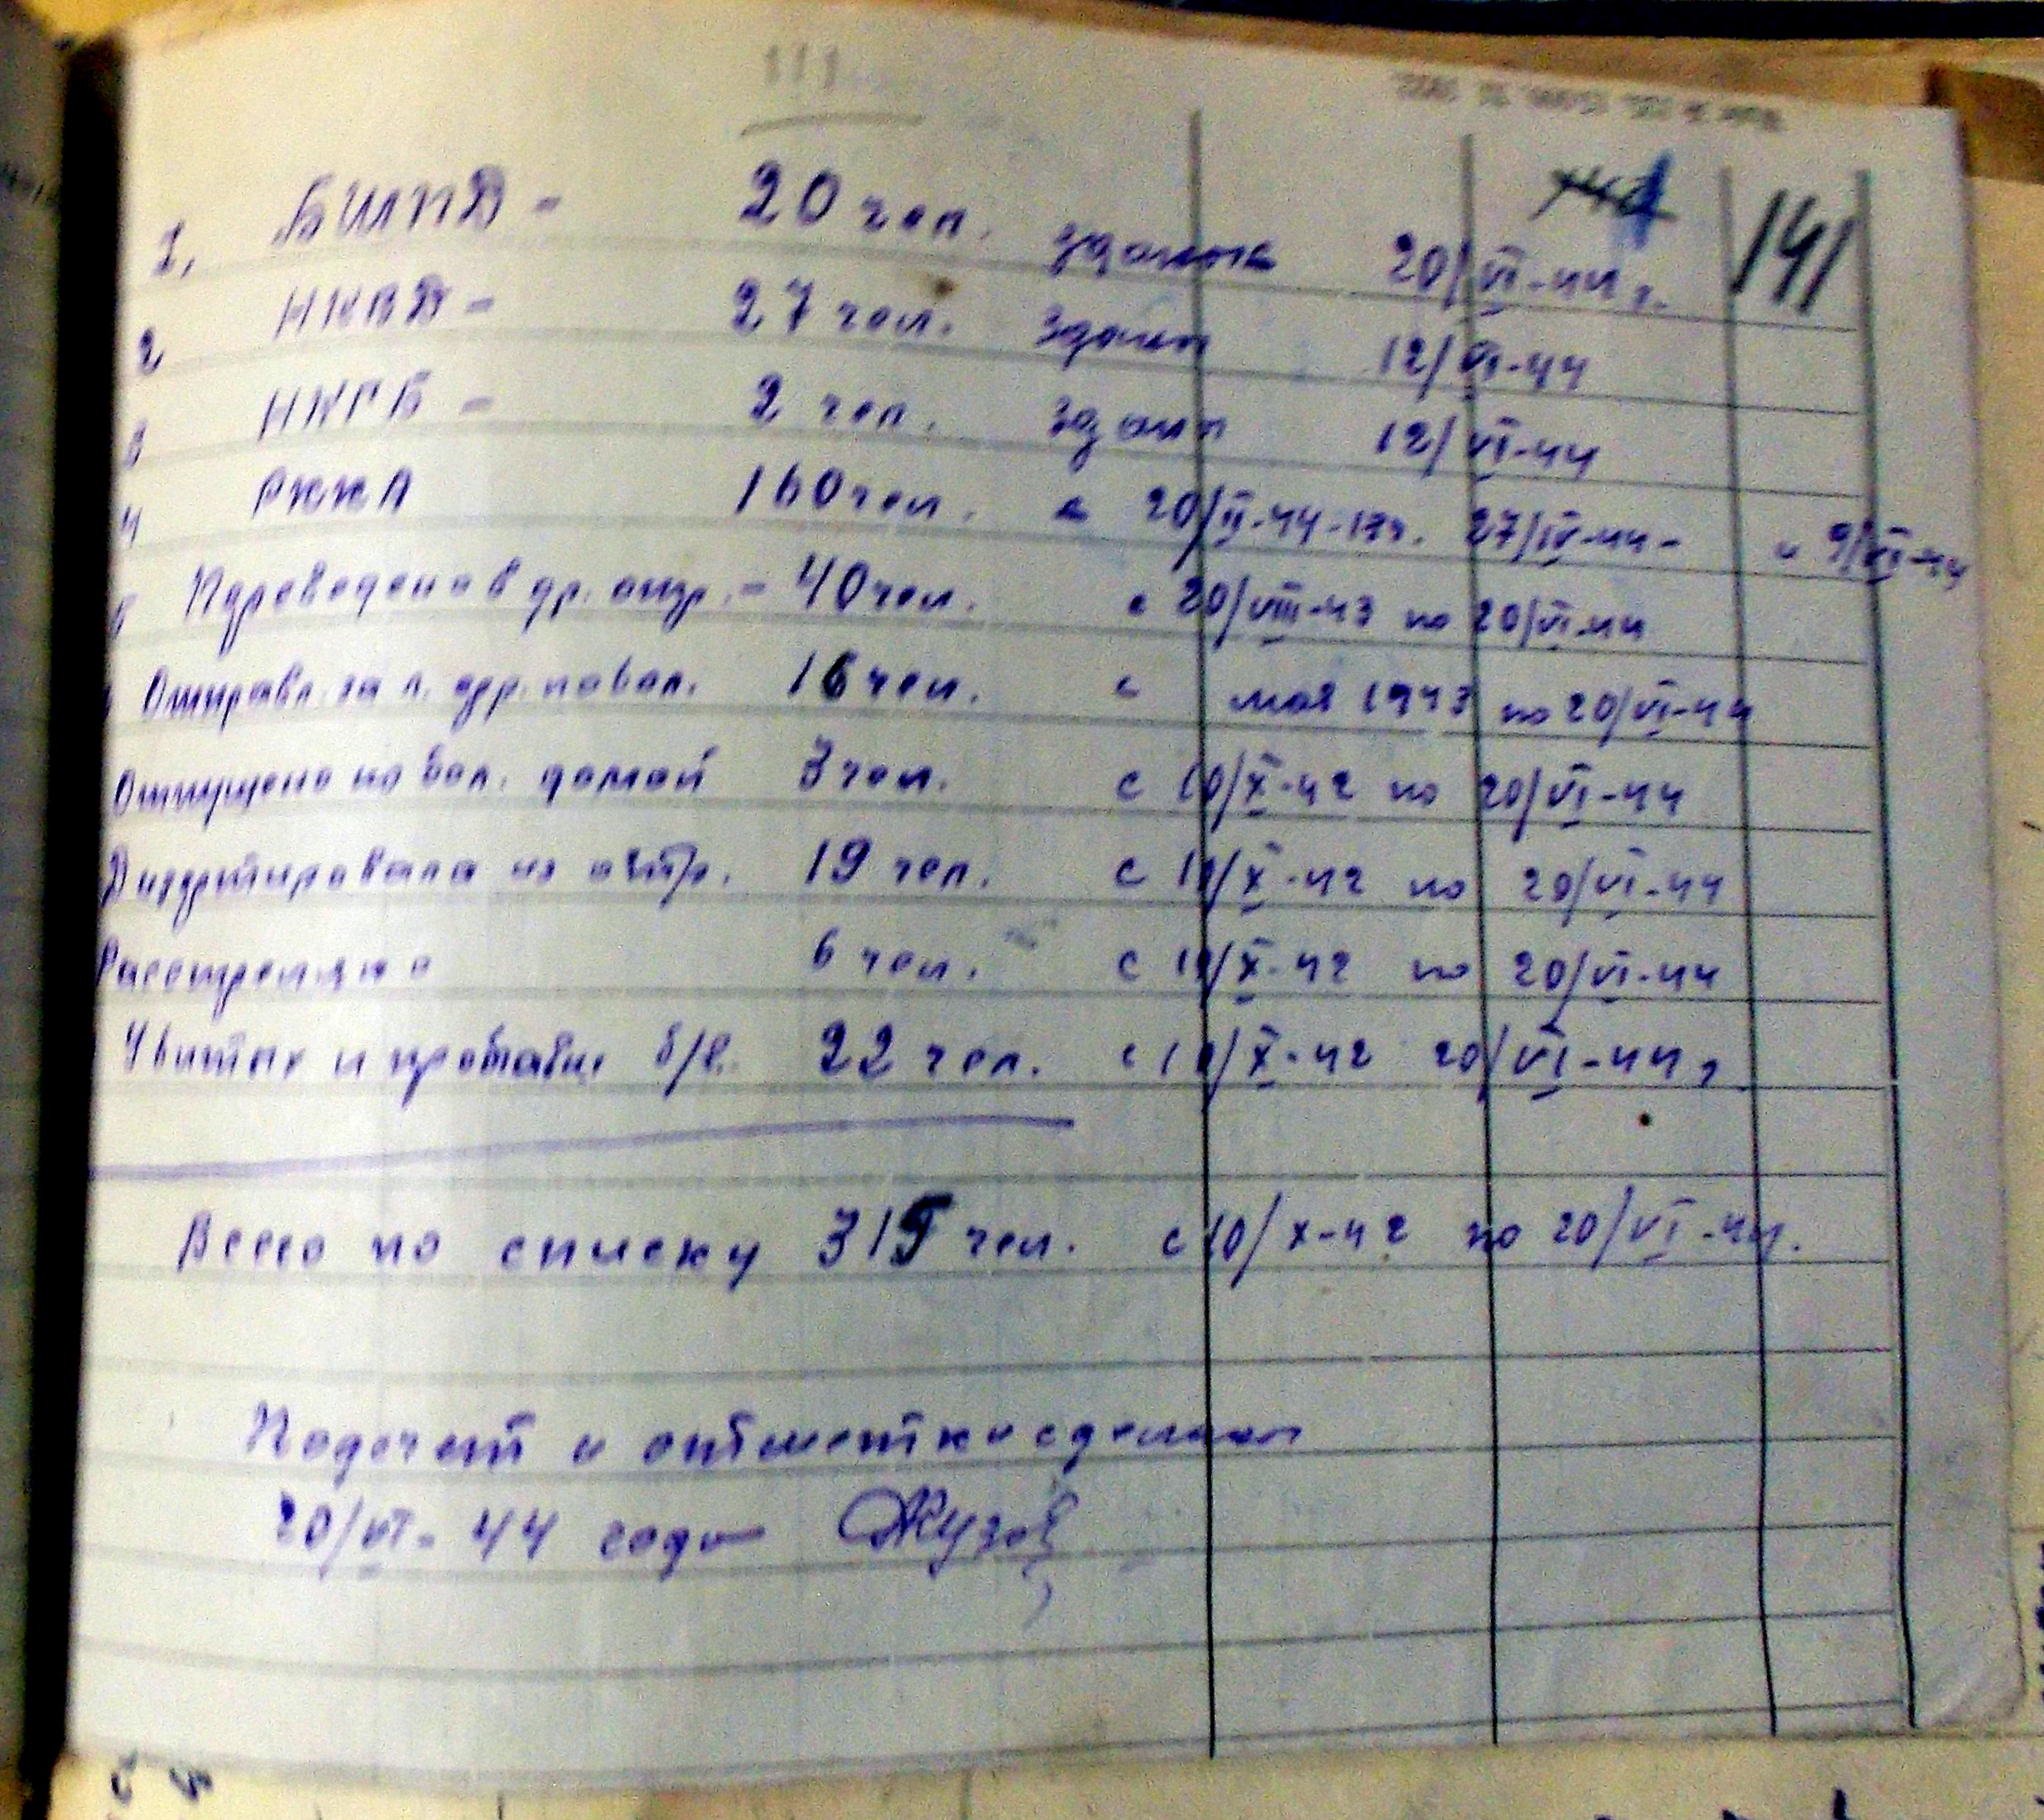 111
141
1. БШПД - 20 чел. зданы 20/VI-44 г.
2 НКВД - 27 чел. зданы 12/VI-44
3 НКГБ - 2 чел. зданы 12/VI-44
4 РККА 160 чел. с 20/II-44-13ч. 27/IV-44- и 9/VI-44
Переведено в др. отр. - 40 чел. с 20/VIII-43 по 20/VI-44
Отправл. за л. фр. по бол. 16 чел. с мая 1943 по 20/VI-44
Отпущено по бол. домой 3 чел. с 10/X-42 по 20/VI-44
Дизертировала из отр. 19 чел. с 10/X-42 по 20/VI-44
Расстреляно 6 чел. с 10/X-42 по 20/VI-44
Убитых и пропавш. б/в. 22 чел. с 10/X-42 20/VI-44 г
Всего по списку 315 чел. с 10/X-42 по 20/VI-44.
Подсчет и отметки сделаны
20/VI-44 года